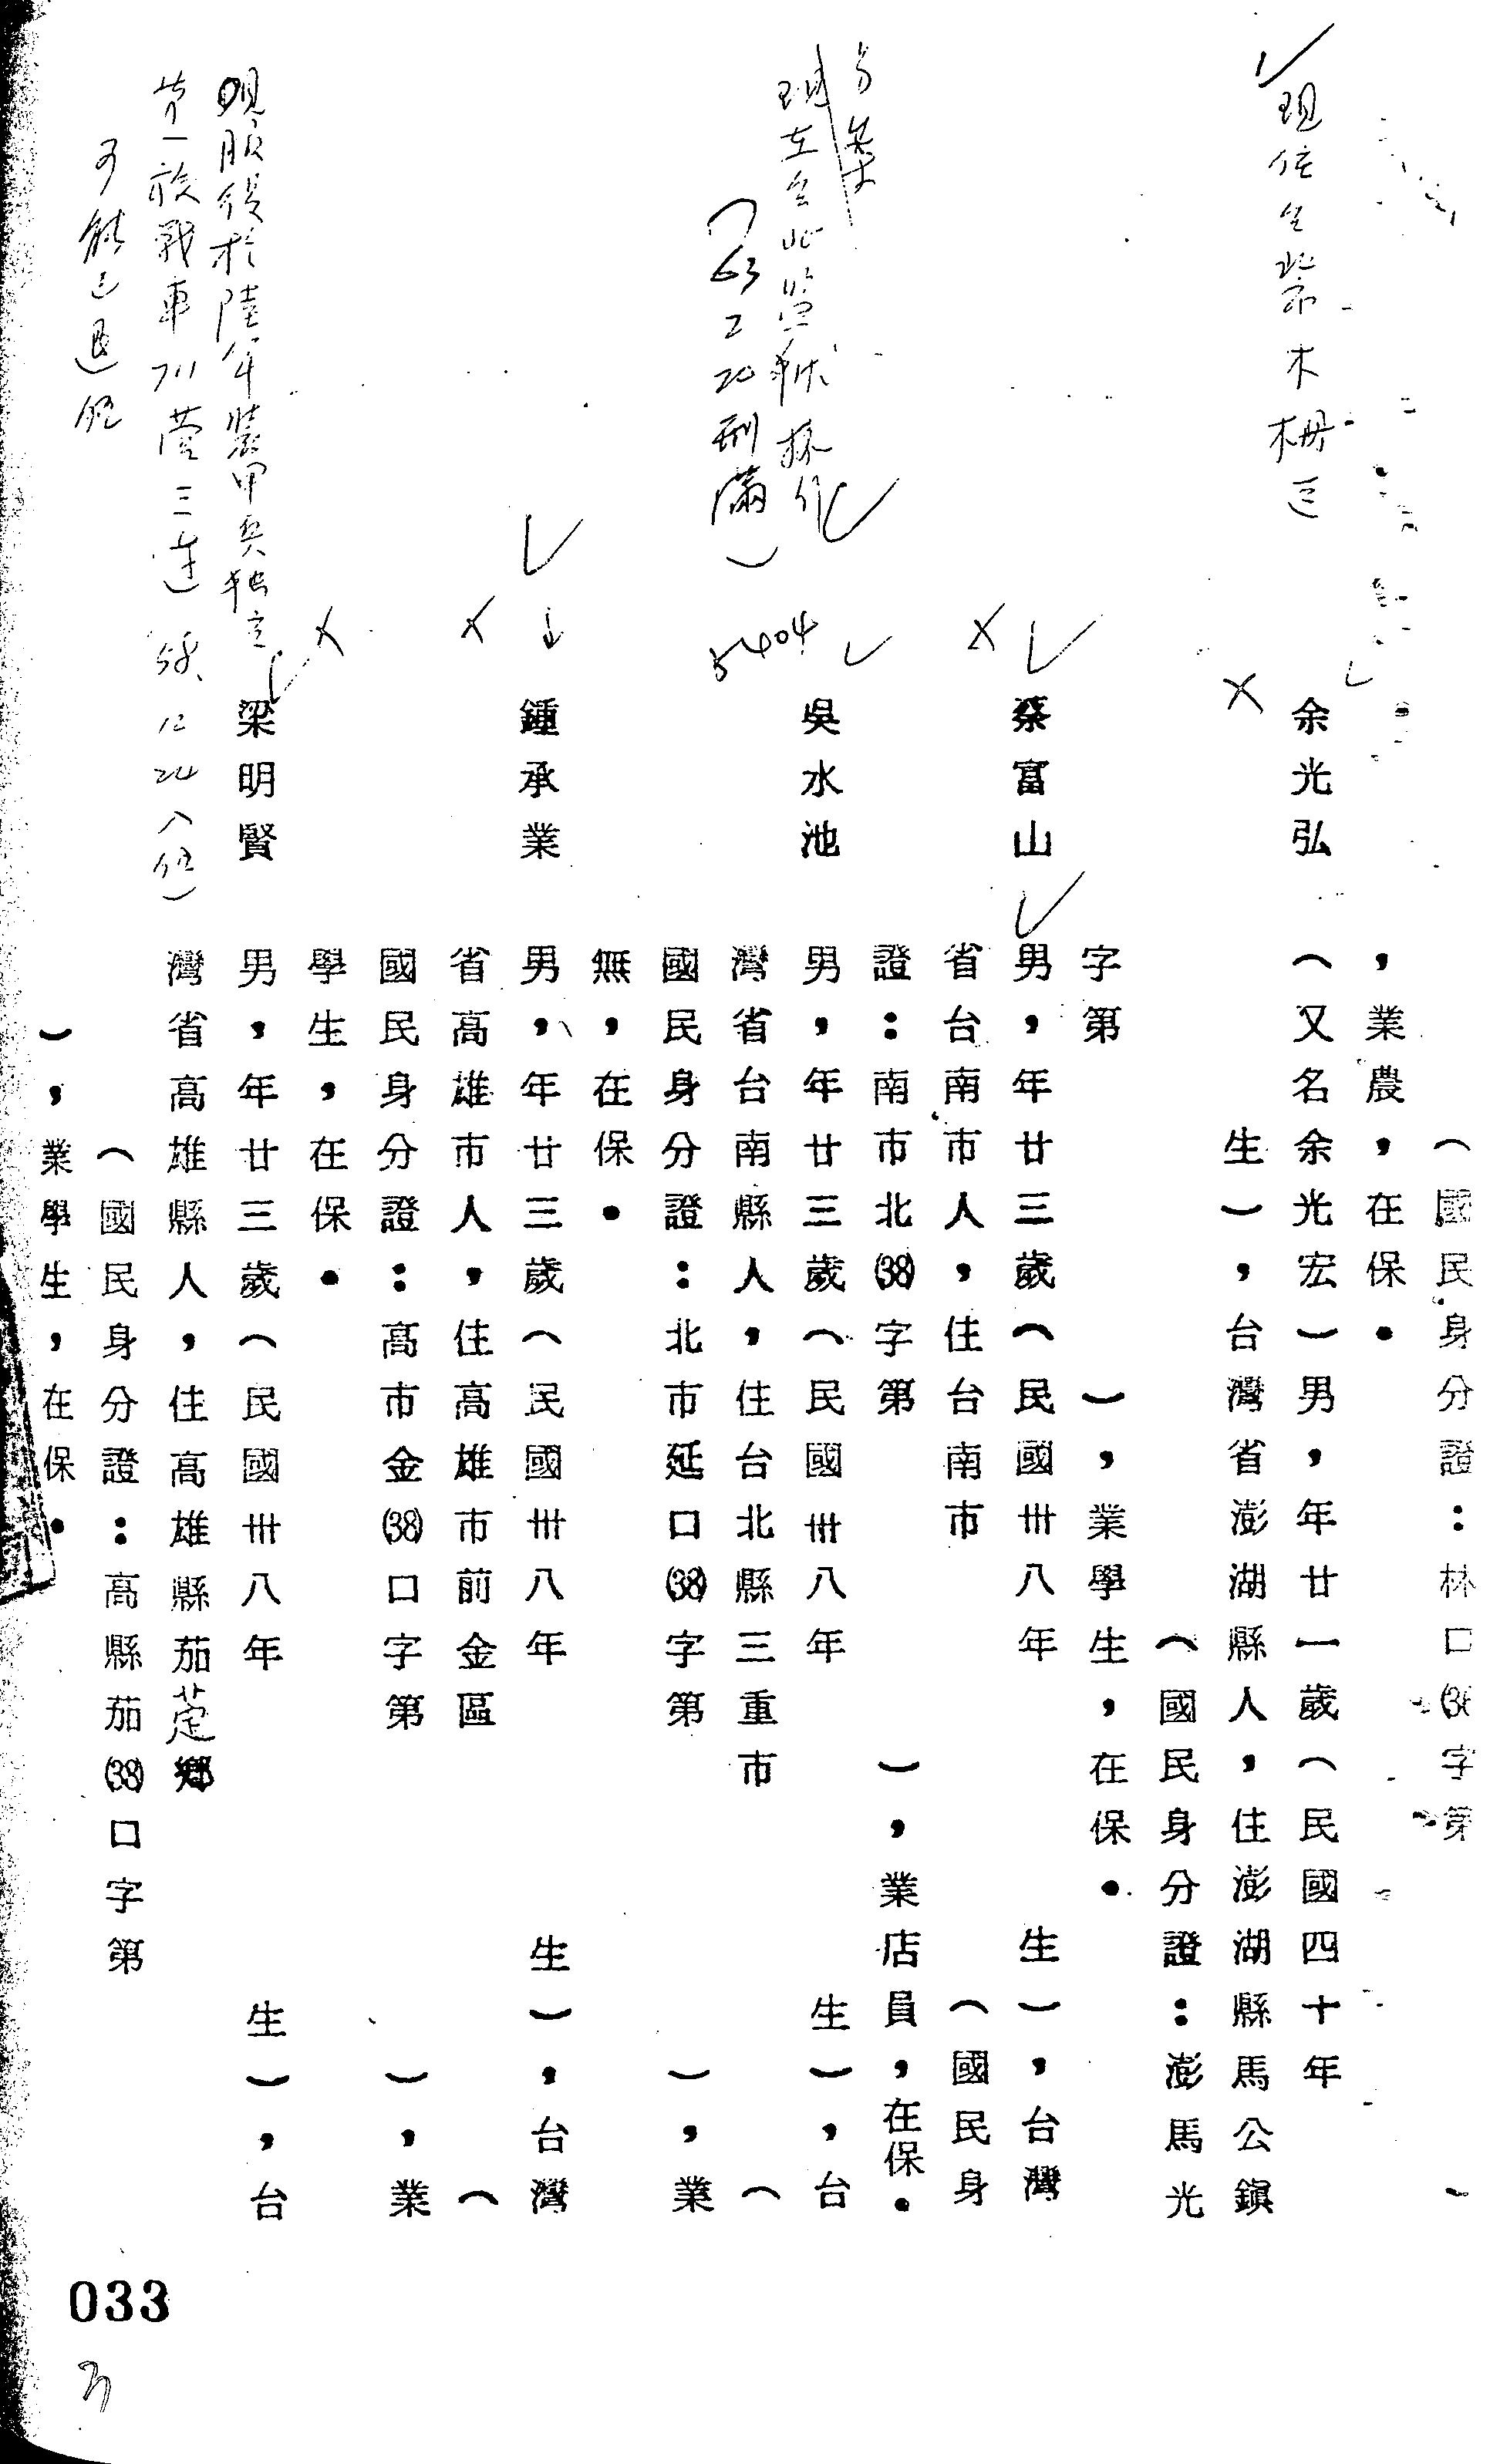 （國民身分證：林口(36)字第
，業農，在保．
現住台北市木柵區
余光弘
（又名余光宏）男，年廿一歲（民國四十年
生），台灣省澎湖縣人，住澎湖縣馬公鎮
（國民身分證：澎馬光
字第
），業學生，在保．
蔡富山
男，年廿三歲（民國卅八年
生），台灣
省台南市人，住台南市
（國民身
證：南市北(38)字第
），業店員，在保．
另案
現在台北監獄執行
（63 2 20刑滿）
5404
吳水池
男，年廿三歲（民國卅八年
生），台
灣省台南縣人，住台北縣三重市
（
國民身分證：北市延口(38)字第
），業
無，在保．
鍾承業
男，年廿三歲（民國卅八年
生），台灣
省高雄市人，住高雄市前金區
（
國民身分證：高市金(38)口字第
），業
學生，在保．
現服役於陸軍裝甲兵獨立
第一旅戰車711營三連
58、12 24入伍）
可能已退伍
梁明賢
男，年廿三歲（民國卅八年
生），台
灣省高雄縣人，住高雄縣茄萣鄉
（國民身分證：高縣茄(38)口字第
），業學生，在保．
033